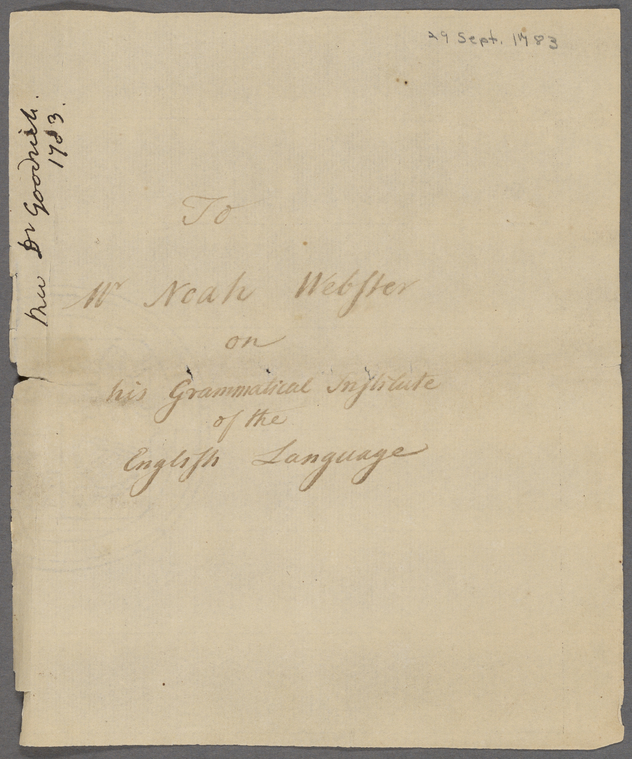 29 Sept. 1783
Rev Dr Goodrich.
1783.
To
Mr Noah Webſter
on
his Grammatical Inſtitute
of the
Engliſh Language